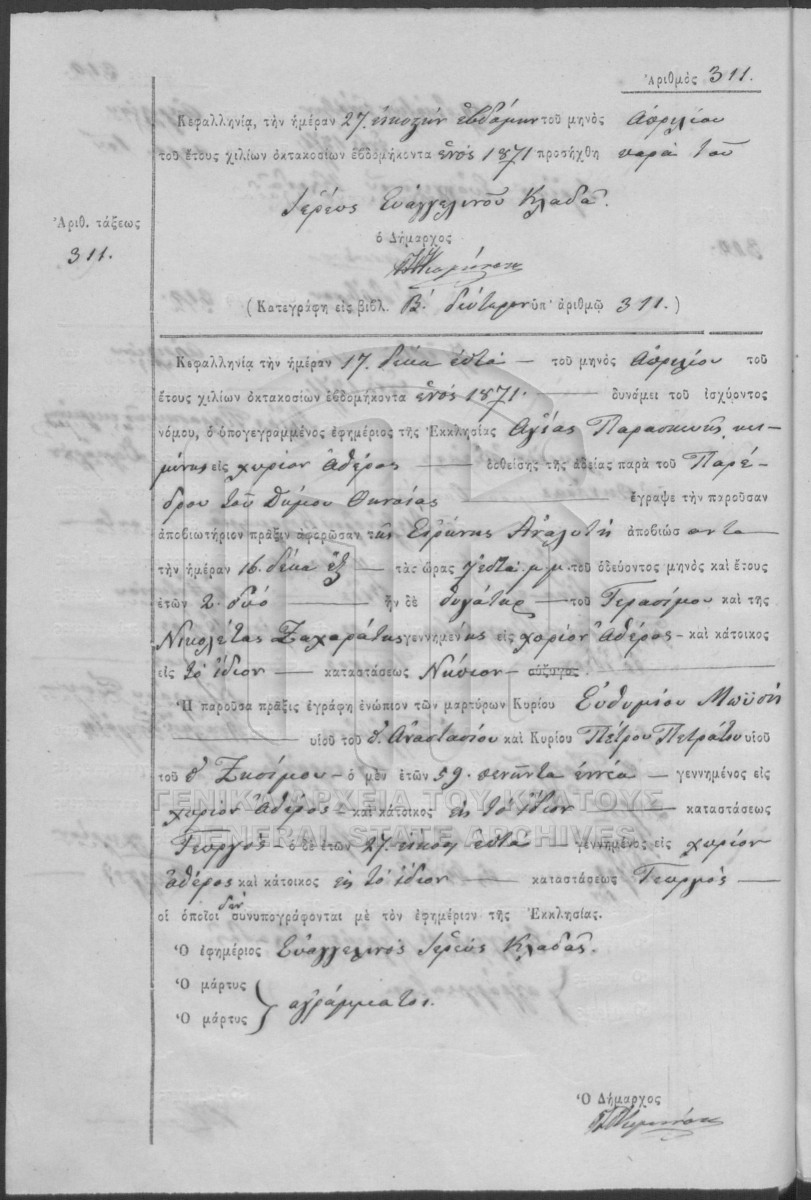 Ἀριθμὸς 311.
Κεφαλληνίᾳ, τὴν ἡμέραν 27. εἰκοστὴν ἑβδόμην τοῦ μηνὸς Ἀπριλίου
τοῦ ἔτους χιλίων ὀκτακοσίων ἑβδομήκοντα ἑνός 1871 προσήχθη παρὰ τοῦ
Ἱερέως Εὐαγγελινοῦ Κλαδᾶ.
Ἀριθ. τάξεως
311.
ὁ Δήμαρχος
(Κατεγράφη εἰς βιβλ. Β. δεύτερον ὑπ' ἀριθμῷ 311.)
Κεφαλληνίᾳ τὴν ἡμέραν 17. δέκα ἑπτὰ — τοῦ μηνὸς Ἀπριλίου τοῦ
ἔτους χιλίων ὀκτακοσίων ἑβδομήκοντα ἑνός 1871. — δυνάμει τοῦ ἰσχύοντος
νόμου, ὁ ὑπογεγραμμένος ἐφημέριος τῆς Ἐκκλησίας Ἁγίας Παρασκευῆς κει-
μένης εἰς χωρίον Ἀθέρας — δοθείσης τῆς ἀδείας παρὰ τοῦ Παρέ-
δρου τοῦ Δήμου Θηναίας — ἔγραψε τὴν παροῦσαν
ἀποβιωτήριον πρᾶξιν ἀφορῶσαν τῆς Εἰρήνης Ἀναλυτῆ ἀποβιώσαντα —
τὴν ἡμέραν 16. δέκα ἓξ — τὰς ὥρας 7 ἑπτὰ μ.μ. τοῦ ὁδεύοντος μηνὸς καὶ ἔτους
ἐτῶν 2. δύο — ἦν δὲ θυγάτηρ — τοῦ Γερασίμου καὶ τῆς
Νικολέτας Ζαχαράτης γεννημένης εἰς χωρίον Ἀθέρας — καὶ κάτοικος
εἰς τὸ ἴδιον — καταστάσεως Νήπιον — σύζυγος
Ἡ παροῦσα πρᾶξις ἐγράφη ἐνώπιον τῶν μαρτύρων Κυρίου Εὐθυμίου Μωϋσῆ
— υἱοῦ τοῦ π. Ἀναστασίου καὶ Κυρίου Πέτρου Πετράτου υἱοῦ
τοῦ π. Ζησίμου — ὁ μὲν ἐτῶν 59. πενῆντα ἐννέα — γεννημένος εἰς
χωρίον Ἀθέρας — καὶ κάτοικος εἰς τὸ ἴδιον — καταστάσεως
Γεωργός — ὁ δὲ ἐτῶν 27. εἴκοσι ἑπτὰ γεννημένος εἰς χωρίον
Ἀθέρας καὶ κάτοικος εἰς τὸ ἴδιον — καταστάσεως Γεωργός —
οἱ ὁποῖοι δὲν συνυπογράφονται μὲ τὸν ἐφημέριον τῆς Ἐκκλησίας.
Ὁ ἐφημέριος Εὐαγγελινὸς Ἱερεὺς Κλαδᾶς.
Ὁ μάρτυς
Ὁ μάρτυς } ἀγράμματοι.
Ὁ Δήμαρχος
ΓΕΝΙΚΑ ΑΡΧΕΙΑ ΤΟΥ ΚΡΑΤΟΥΣ
GENERAL STATE ARCHIVES